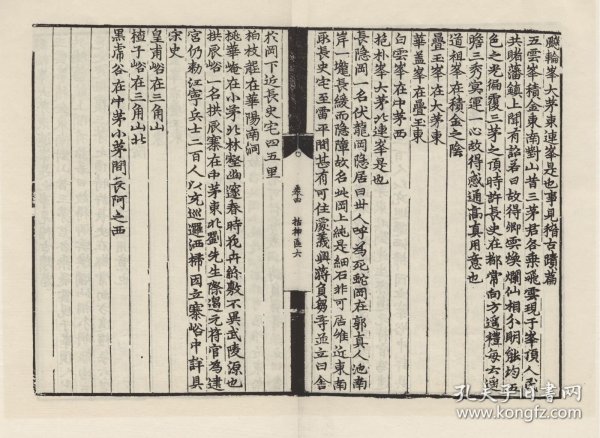 飈輪峯大茅東連峯是也事見稽古蹟篇
五雲峯積金東南對山昔三茅君各乘飛雲現于峯頂人民
共賭藩鎮上聞有詔若曰故得卿雲煥爛仙相分明能均五
色之光徧覆三茅之頂時許長史在都常向方遥禮每六遥
瞻三秀冥運一心故得感通高真用意也
道祖峯在積金之陰
疊玉峯在大茅東
華蓋峯在疊玉東
白雲峯在中茅西
抱朴峯大茅北連峯是也
長隱岡一名伏龍岡隱居曰世人呼為死蛇岡在郭真人池南
岸一壠長綾而隱障故名此岡上純是細石非可居唯近東南
取長史宅至雷平間甚有可住處義興蔣負芻等並立曰舍
卷四 括神區六
於岡下近長史宅四五里
柏枝壠在華陽南洞
桃華崦在小茅北林壑幽邃春時花卉紛敷不異武陵源也
拱辰峪一名拱辰寨在中茅東北劉先生際遇元符官為建
宮仍勑江寧兵士二百人以充巡邏洒掃因立寨峪中詳具
宋史
皇甫峪在三角山
楂子峪在三角山北
黑虎谷在中茅小茅間長阿之西
孔夫子旧书网
www.kongfz.com